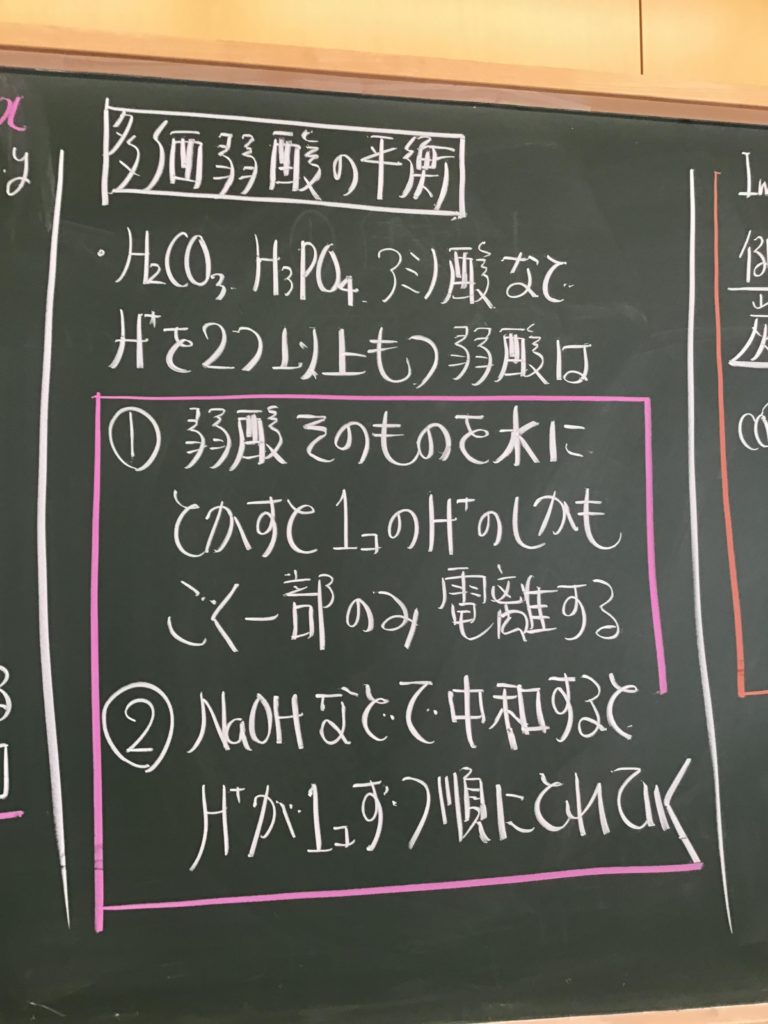 x
y
多価弱酸の平衡
・H₂CO₃ H₃PO₄ アミノ酸など
H⁺を2つ以上もつ弱酸は
① 弱酸そのものを水に
とかすと1コのH⁺のしかも
ごく一部のみ電離する
② NaOHなどで中和すると
H⁺が1コずつ順にとれていく